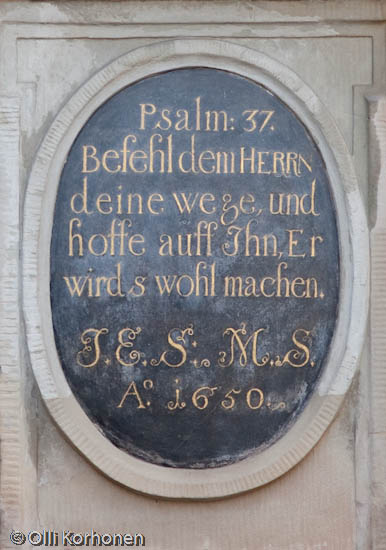 Psalm: 37.
Befehl dem HERRN
deine wege, und
hoffe auff Ihn, Er
wirds wohl machen.
J. E. S. M. S.
Aº 1650.
© Olli Korhonen